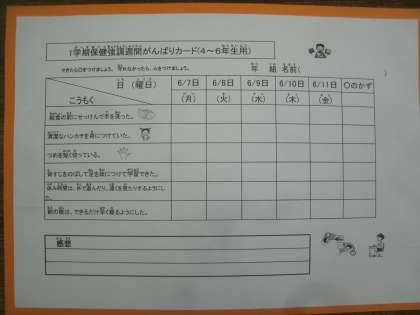 1学期保健強調週間がんばりカード(4～6年生用)
できたら○をつけましょう。 守れなかったら、×をつけましょう。 年 組 名前( )
日 (曜日) 6/7日 6/8日 6/9日 6/10日 6/11日 ○のかず
こうもく (月) (火) (水) (木) (金)
給食の前にせっけんで手を洗った。
清潔なハンカチを身につけていた。
つめを短く切っている。
背すじをのばして足を床につけて学習できた。
休み時間は、外で遊んだり、遠くを見たりするようにし
た。
朝の歯は、できるだけ早く磨るようにした。
感想